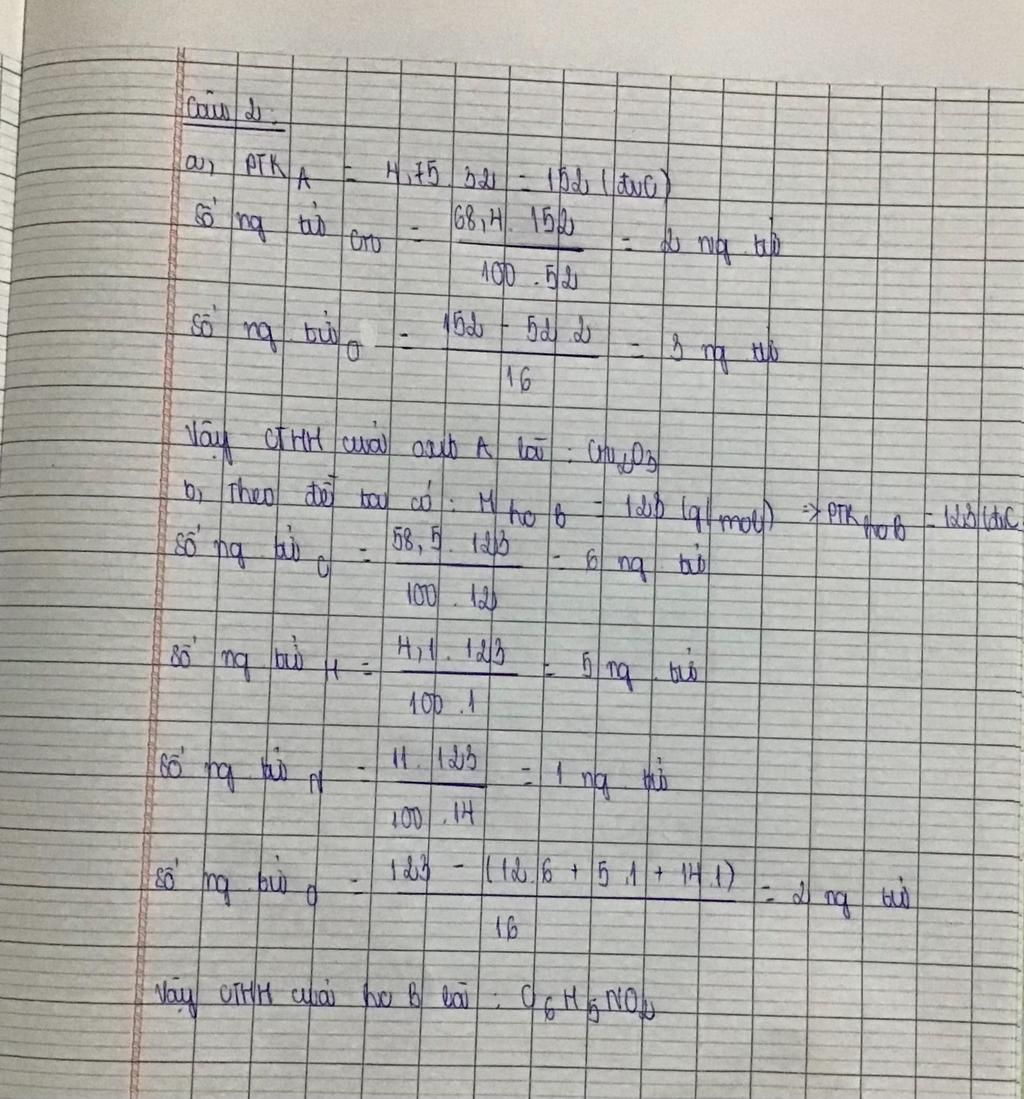 Câu 2:
a, PTK A = 4,75 . 32 = 152 (đvC)
Số ng tử Cr = 68,4 . 152 / 100 . 52 = 2 ng tử
Số ng tử O = 152 - 52 . 2 / 16 = 3 ng tử
Vậy CTHH của oxit A là : Cr2O3
b, Theo đề ta có : M hc B = 123 (g/mol) => PTK hc B = 123 (đvC
Số ng tử C = 58,5 . 123 / 100 . 12 = 6 ng tử
Số ng tử H = 4,1 . 123 / 100 . 1 = 5 ng tử
Số ng tử N = 11 . 123 / 100 . 14 = 1 ng tử
Số ng tử O = 123 - (12.6 + 5.1 + 14.1) / 16 = 2 ng tử
Vậy CTHH của hc B là : C6H5NO2